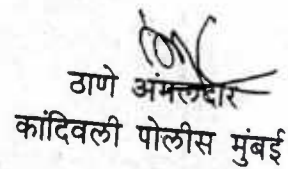 ठाणे अंमलदार
कांदिवली पोलीस मुंबई